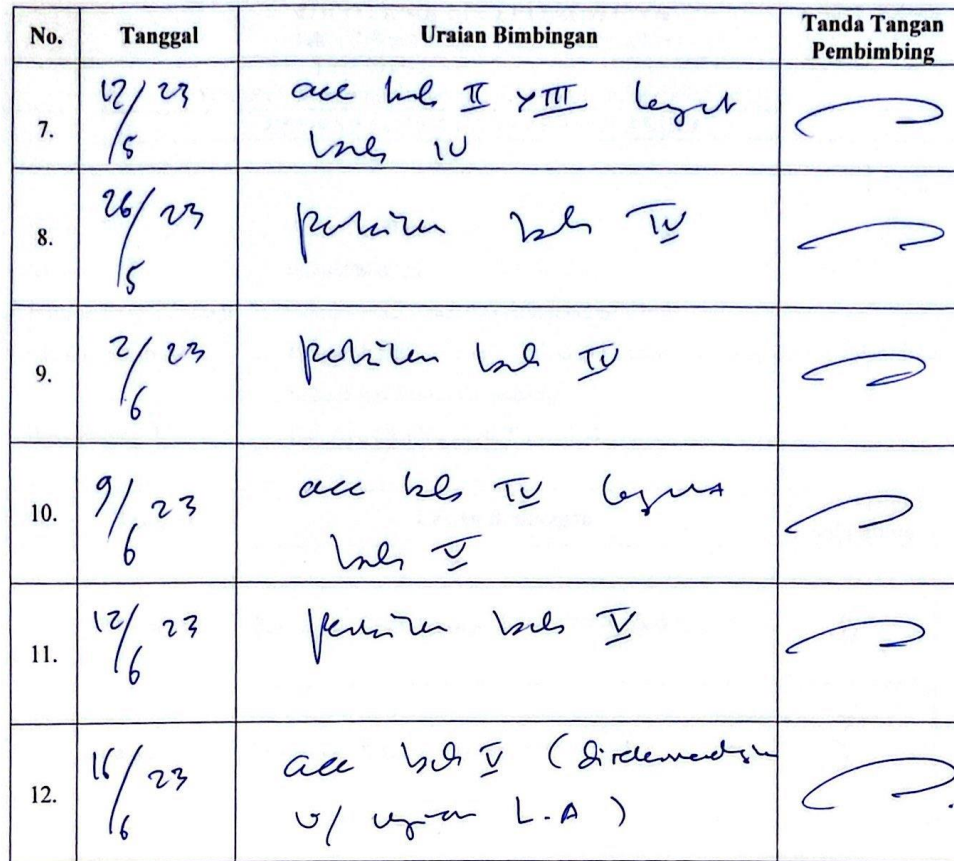 No. Tanggal Uraian Bimbingan Tanda Tangan
Pembimbing
7. 12/5 23 acc bab II & III lanjut
bab IV
8. 26/5 23 perbaikan bab IV
9. 2/6 23 perbaikan bab IV
10. 9/6 23 acc bab IV lanjut
bab V
11. 12/6 23 perbaikan bab V
12. 16/6 23 acc bab V (
u/ ujian L.A)